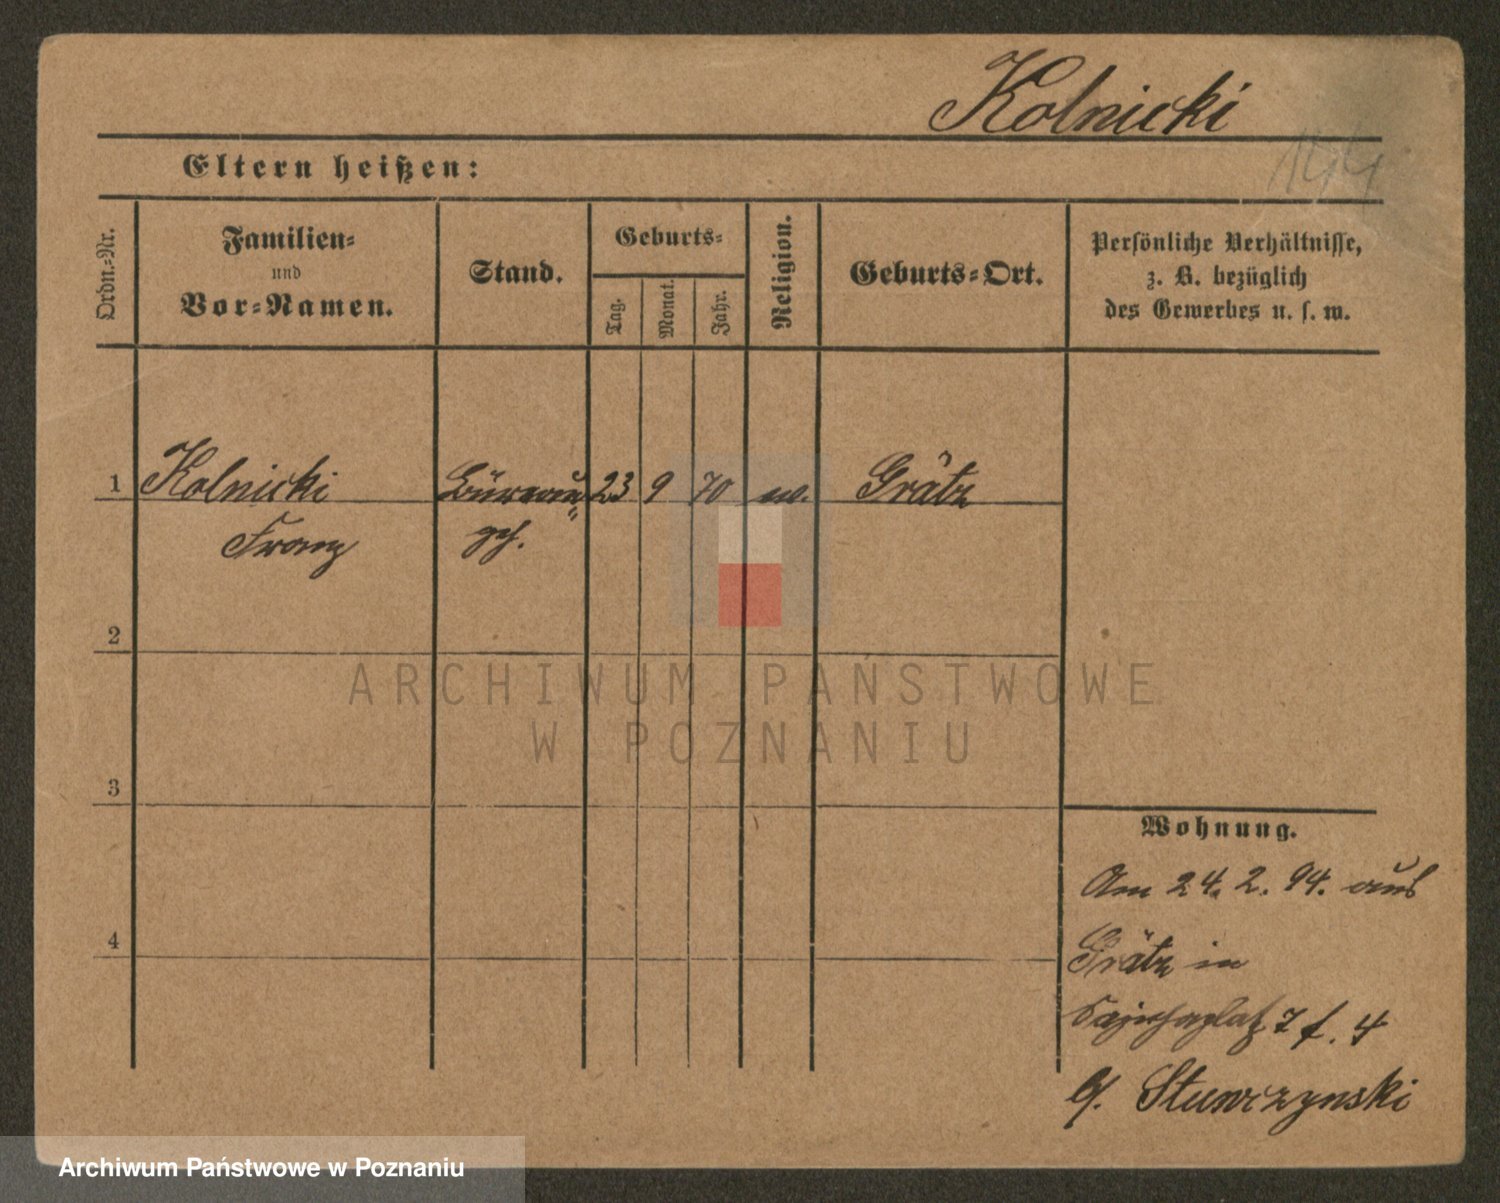 Kolnicki
144
Eltern heißen:
Ordn.-Nr.
Familien-
und
Vor-Namen.
Stand.
Geburts-
Tag.
Monat.
Jahr.
Religion.
Geburts-Ort.
Persönliche Verhältnisse,
z. B. bezüglich
des Gewerbes u. s. w.
1 Kolnicki Büreau= 23 9 70 Grätz
Franz geh.
2
ARCHIWUM PAŃSTWOWE
W POZNANIU
3
Wohnung.
Am 24. 2. 94. aus
4
Grätz in
7 f. 4
b/.
Archiwum Państwowe w Poznaniu